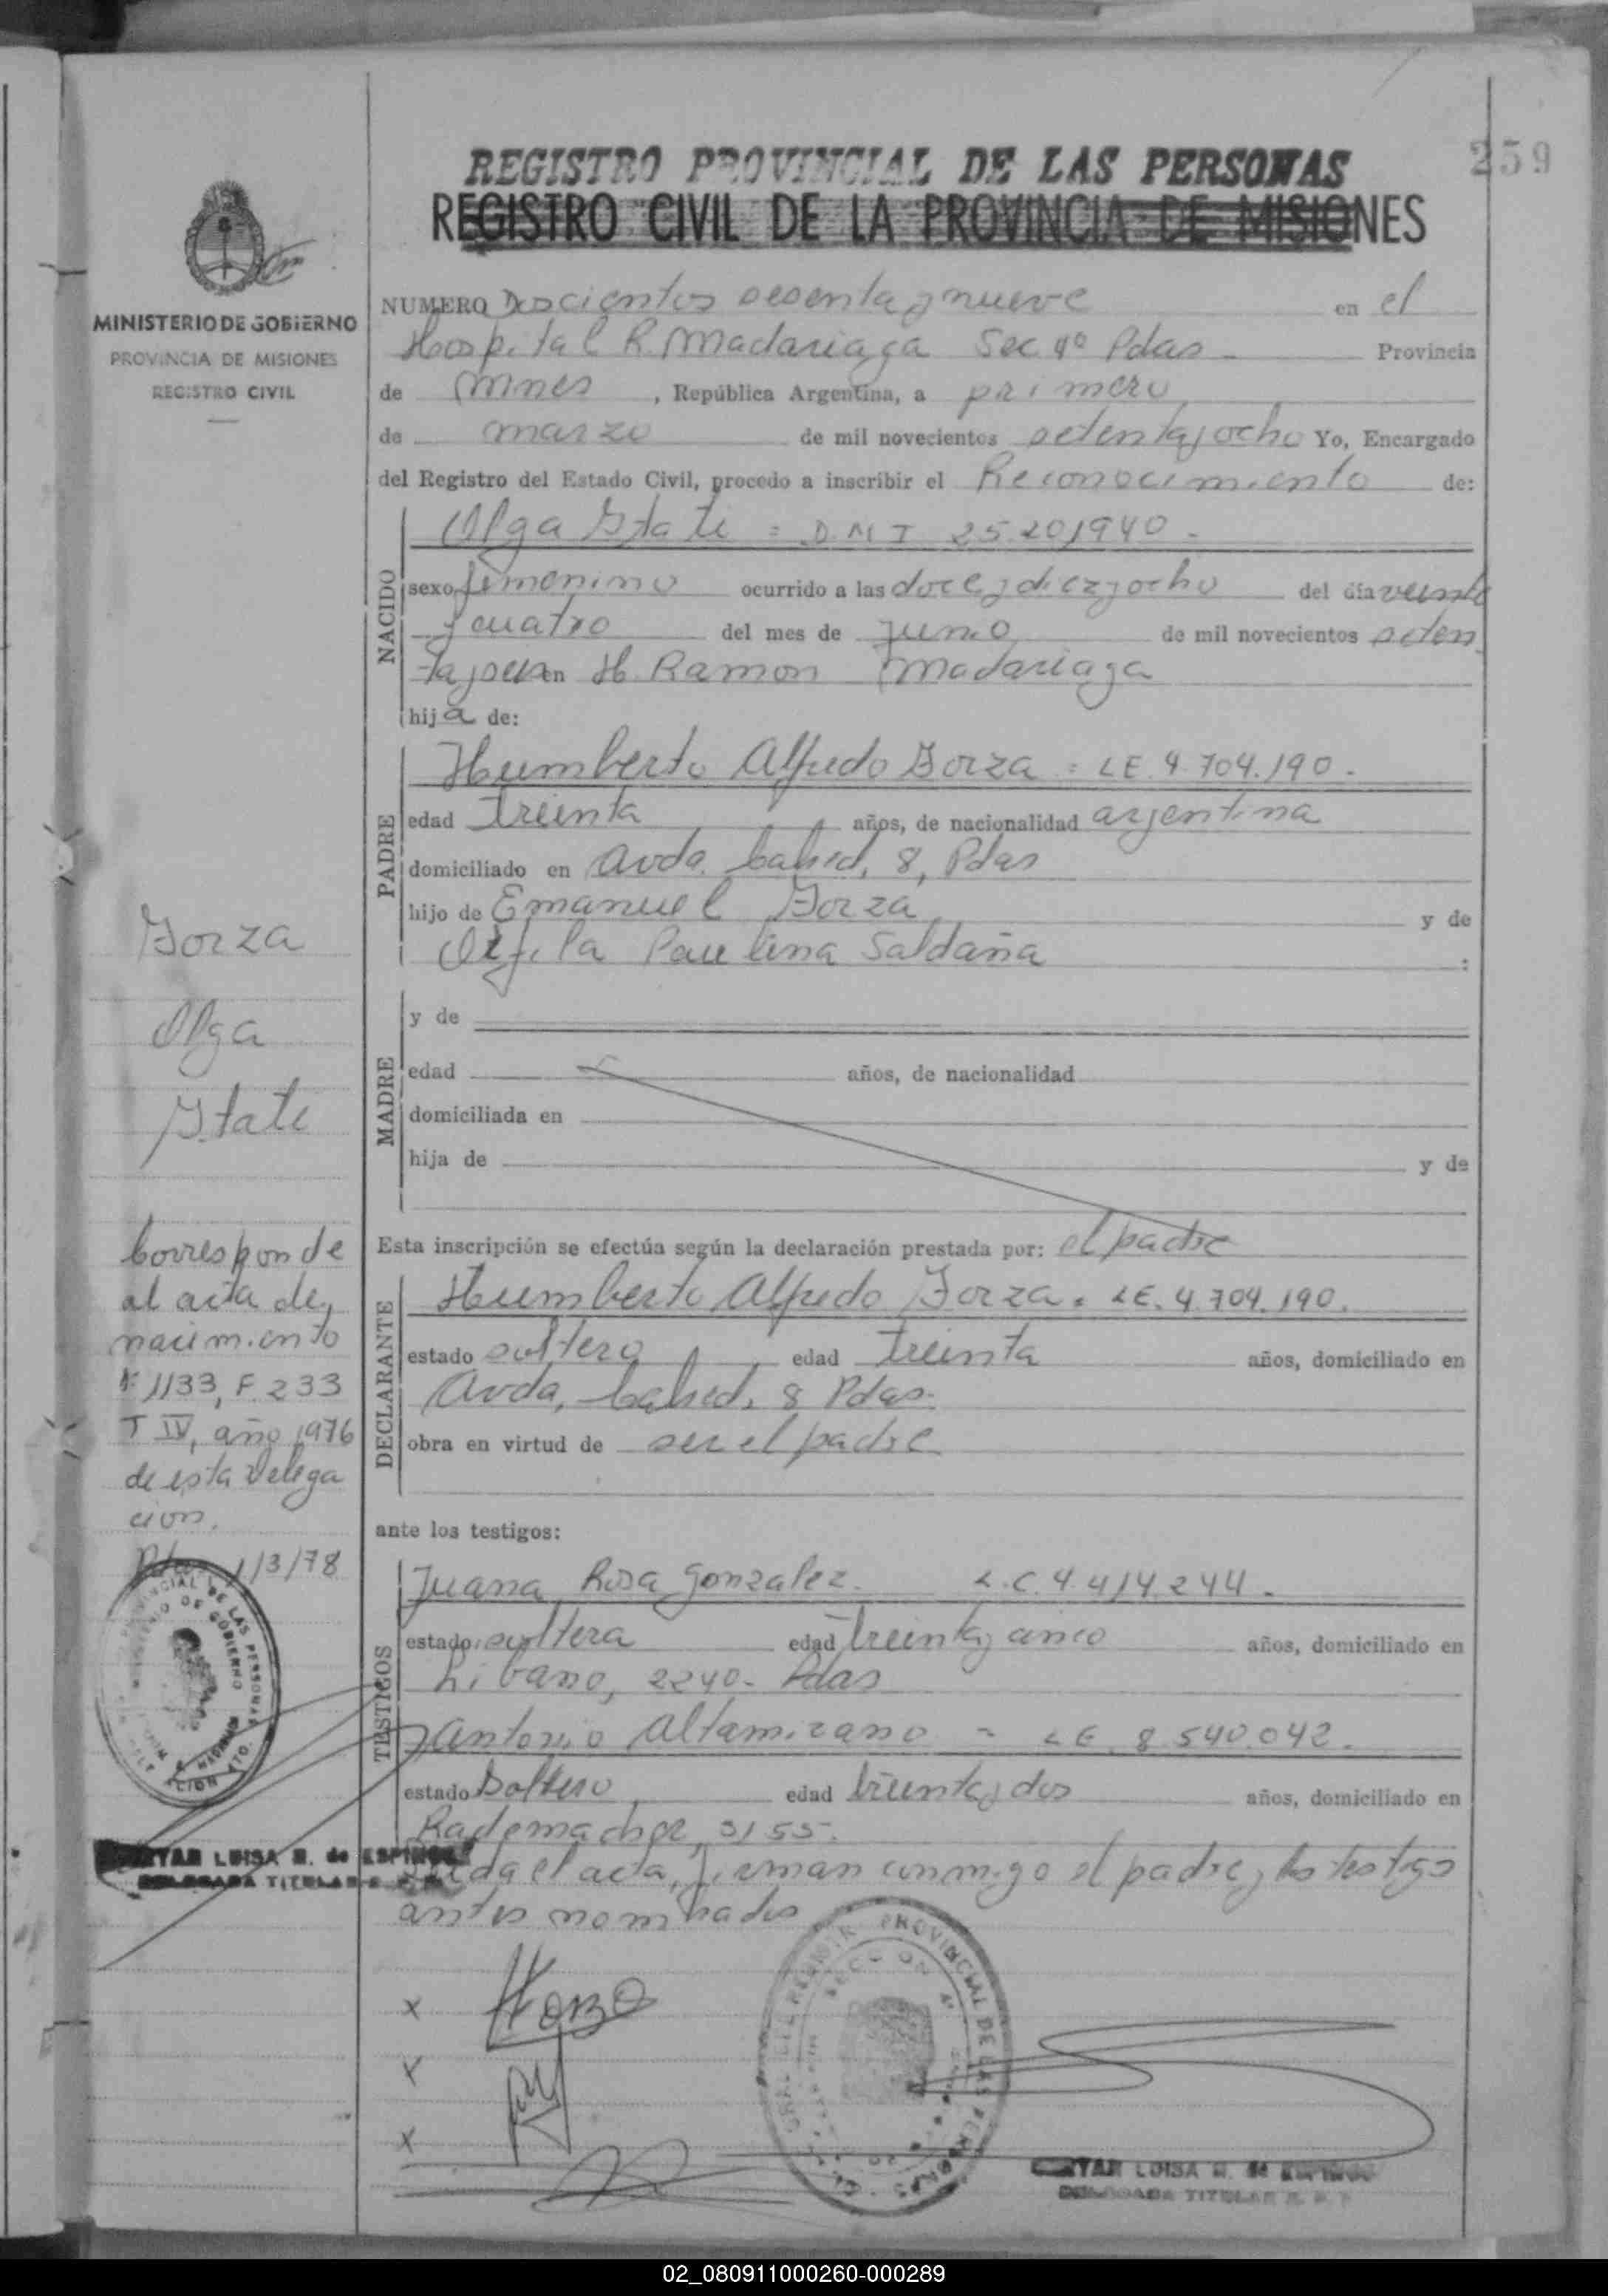 259
REGISTRO PROVINCIAL DE LAS PERSONAS
REGISTRO CIVIL DE LA PROVINCIA DE MISIONES
MINISTERIO DE GOBIERNO
PROVINCIA DE MISIONES
REGISTRO CIVIL
NUMERO Doscientos sesenta y nueve en el
Hospital R. Madariaga Sec. 4º Pdas - Provincia
de Mnes, República Argentina, a primero
de marzo de mil novecientos setenta y ocho Yo, Encargado
del Registro del Estado Civil, procedo a inscribir el Reconocimiento de:
NACIDO
Olga Itati = D.N.I 25.201940 -
sexo femenino ocurrido a las doce y diez y ocho del día veinte
y cuatro del mes de junio de mil novecientos seten
ta y seis en H. Ramon Madariaga
hija de:
PADRE
Humberto Alfredo Borza = LE. 4.704.190 -
edad treinta años, de nacionalidad argentina
domiciliado en Avda. 8, Pdas
hijo de Emanuel Borza y de
Paulina Saldaña :
MADRE
y de
edad años, de nacionalidad
domiciliada en
hija de y de
Esta inscripción se efectúa según la declaración prestada por: el padre
DECLARANTE
Humberto Alfredo Borza = LE. 4.704.190.
estado soltero, edad treinta años, domiciliado en
Avda, 8 Pdas.
obra en virtud de ser el padre
ante los testigos:
TESTIGOS
Juana Rosa Gonzalez. L.C. 4.414.244 -
estado soltera edad treinta y cinco años, domiciliado en
Libano, 2240 - Pdas
y Antonio Altamirano = LE 8.540.042.
estado Soltero, edad treinta y dos años, domiciliado en
Rademacher, 3155.
el acta, firman conmigo el padre y los testigo
antes nombrados
x
x
x
LUISA R. de
DELEGADA TITULAR
Borza
Olga
Itati
Corresponde
al acta de
nacimiento
Nº 1133, F. 233
T IV, año 1976
de esta Delega
cion.
Pdas 1/3/78
PROVINCIAL DE LAS PERSONAS
MINISTERIO DE GOBIERNO
LUISA R. de ESPINOZA
DELEGADA TITULAR
PROVINCIAL DE LAS PERSONAS
SECCION 4º
02_080911000260-000289